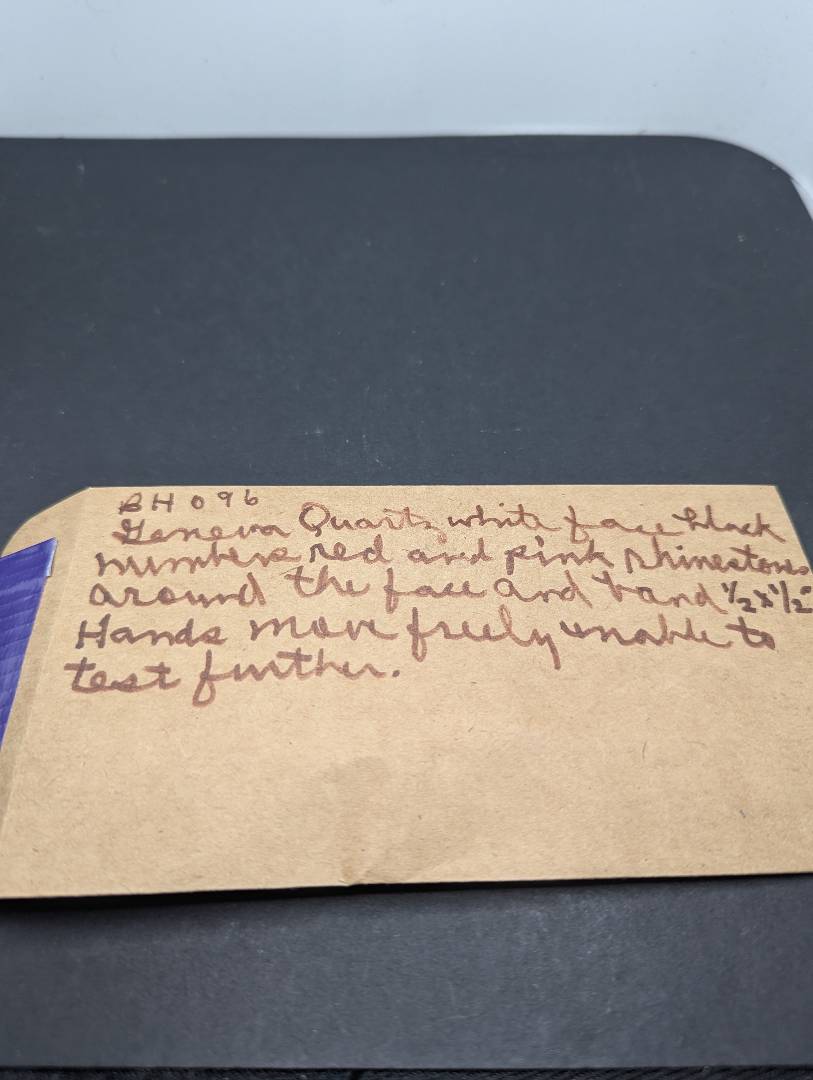 BH096
Geneva Quartz white face black
numbers red and pink rhinestones
around the face and band 1/2 x 1/2"
Hands move freely unable to
test further.